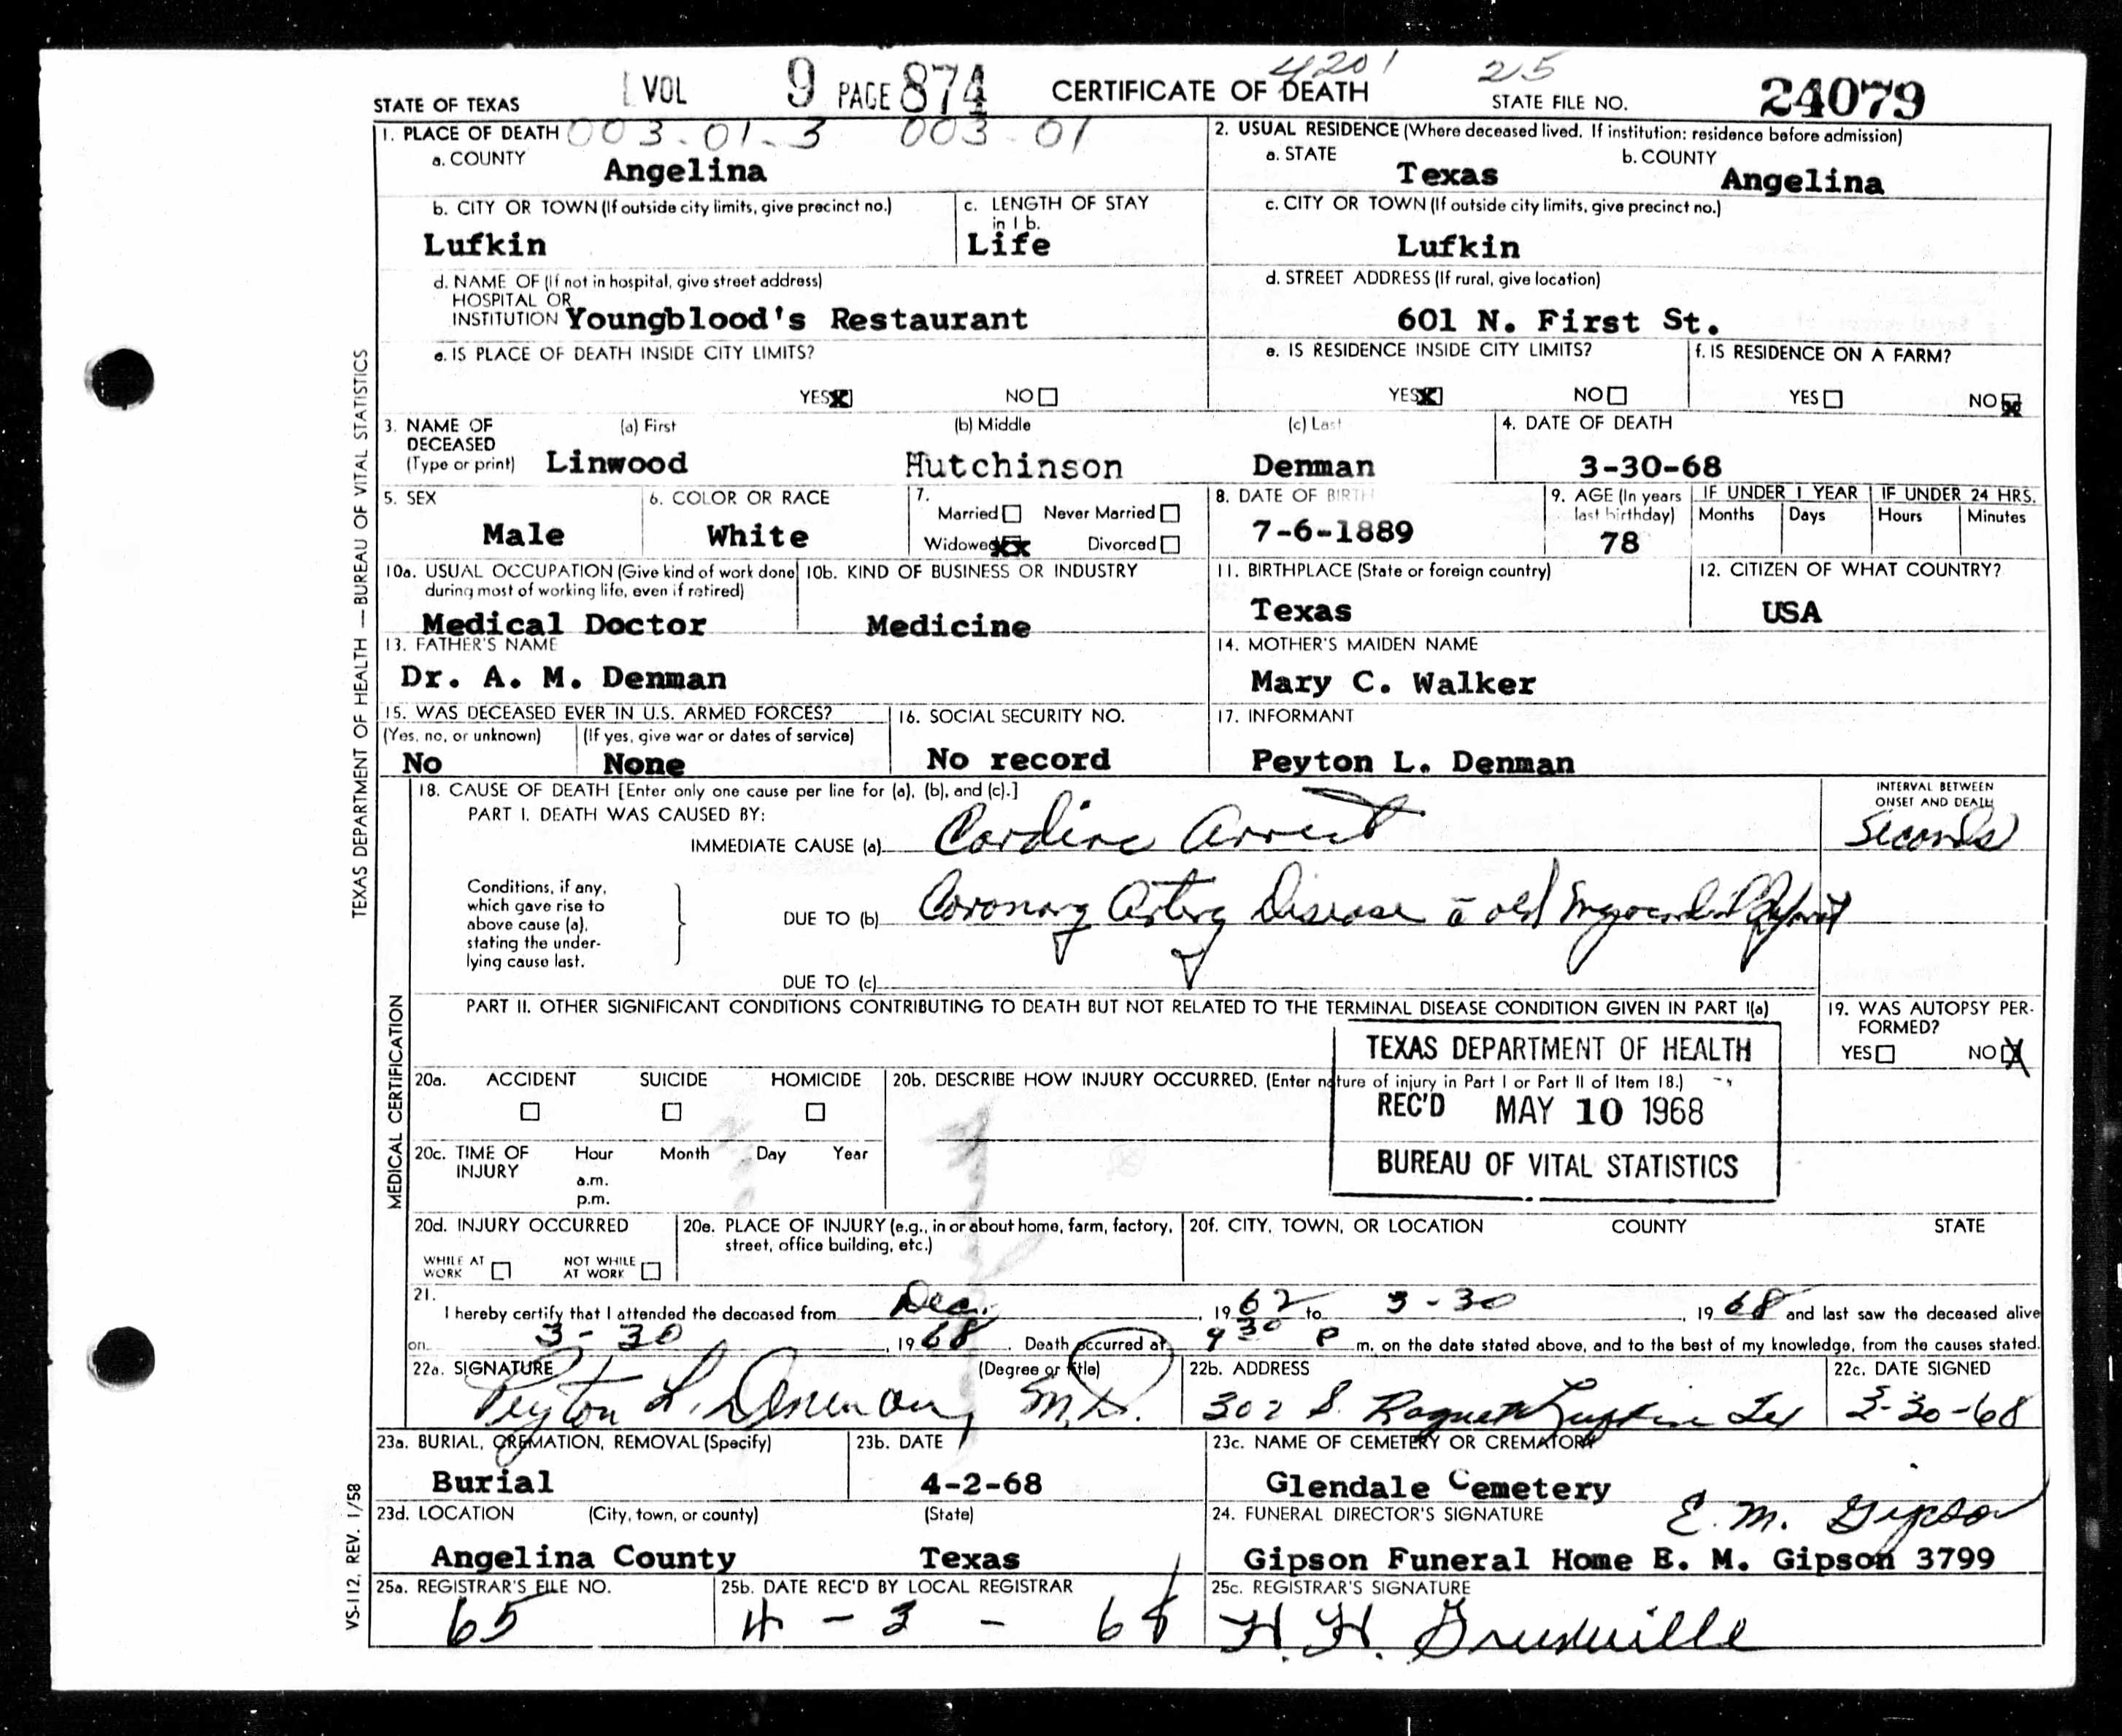 4201 25
STATE OF TEXAS VOL 9 PAGE 874 CERTIFICATE OF DEATH STATE FILE NO. 24079
1. PLACE OF DEATH 003-01-3 003-01
a. COUNTY
Angelina
2. USUAL RESIDENCE (Where deceased lived. If institution: residence before admission)
a. STATE b. COUNTY
Texas Angelina
b. CITY OR TOWN (If outside city limits, give precinct no.)
Lufkin
c. LENGTH OF STAY
in 1 b.
Life
c. CITY OR TOWN (If outside city limits, give precinct no.)
Lufkin
d. NAME OF (If not in hospital, give street address)
HOSPITAL OR
INSTITUTION Youngblood's Restaurant
d. STREET ADDRESS (If rural, give location)
601 N. First St.
e. IS PLACE OF DEATH INSIDE CITY LIMITS?
YES X NO
e. IS RESIDENCE INSIDE CITY LIMITS?
YES X NO
f. IS RESIDENCE ON A FARM?
YES NO X
3. NAME OF (a) First (b) Middle (c) Last
DECEASED
(Type or print) Linwood Hutchinson Denman
4. DATE OF DEATH
3-30-68
5. SEX
Male
6. COLOR OR RACE
White
7.
Married Never Married
Widowed XX Divorced
8. DATE OF BIRTH
7-6-1889
9. AGE (In years
last birthday)
78
IF UNDER 1 YEAR IF UNDER 24 HRS.
Months Days Hours Minutes
10a. USUAL OCCUPATION (Give kind of work done
during most of working life, even if retired)
Medical Doctor
10b. KIND OF BUSINESS OR INDUSTRY
Medicine
11. BIRTHPLACE (State or foreign country)
Texas
12. CITIZEN OF WHAT COUNTRY?
USA
13. FATHER'S NAME
Dr. A. M. Denman
14. MOTHER'S MAIDEN NAME
Mary C. Walker
15. WAS DECEASED EVER IN U.S. ARMED FORCES?
(Yes, no, or unknown) (If yes, give war or dates of service)
No None
16. SOCIAL SECURITY NO.
No record
17. INFORMANT
Peyton L. Denman
18. CAUSE OF DEATH [Enter only one cause per line for (a), (b), and (c).]
PART I. DEATH WAS CAUSED BY:
IMMEDIATE CAUSE (a) Cardiac Arrest
INTERVAL BETWEEN
ONSET AND DEATH
Seconds
Conditions, if any,
which gave rise to
above cause (a),
stating the under-
lying cause last.
DUE TO (b) Coronary Artery Disease c̄ old Myocardial Infarct
DUE TO (c)
PART II. OTHER SIGNIFICANT CONDITIONS CONTRIBUTING TO DEATH BUT NOT RELATED TO THE TERMINAL DISEASE CONDITION GIVEN IN PART I(a)
19. WAS AUTOPSY PER-
FORMED?
YES NO X
TEXAS DEPARTMENT OF HEALTH
REC'D MAY 10 1968
BUREAU OF VITAL STATISTICS
20a. ACCIDENT SUICIDE HOMICIDE
20b. DESCRIBE HOW INJURY OCCURRED. (Enter nature of injury in Part I or Part II of Item 18.)
20c. TIME OF Hour Month Day Year
INJURY
a.m.
p.m.
20d. INJURY OCCURRED
WHILE AT NOT WHILE
WORK AT WORK
20e. PLACE OF INJURY (e.g., in or about home, farm, factory,
street, office building, etc.)
20f. CITY, TOWN, OR LOCATION COUNTY STATE
21.
I hereby certify that I attended the deceased from Dec., 1962 to 3-30, 1968 and last saw the deceased alive
on 3-30, 1968. Death occurred at 9 30 P m. on the date stated above, and to the best of my knowledge, from the causes stated.
22a. SIGNATURE (Degree or title)
Peyton L. Denman, M.D.
22b. ADDRESS
302 S. Raguet Lufkin Tex
22c. DATE SIGNED
3-30-68
23a. BURIAL, CREMATION, REMOVAL (Specify)
Burial
23b. DATE
4-2-68
23c. NAME OF CEMETERY OR CREMATORY
Glendale Cemetery
23d. LOCATION (City, town, or county) (State)
Angelina County Texas
24. FUNERAL DIRECTOR'S SIGNATURE E. M. Gipson
Gipson Funeral Home E. M. Gipson 3799
25a. REGISTRAR'S FILE NO.
65
25b. DATE REC'D BY LOCAL REGISTRAR
4-3-68
25c. REGISTRAR'S SIGNATURE
H. H.
TEXAS DEPARTMENT OF HEALTH — BUREAU OF VITAL STATISTICS
MEDICAL CERTIFICATION
VS-112, REV. 1/58